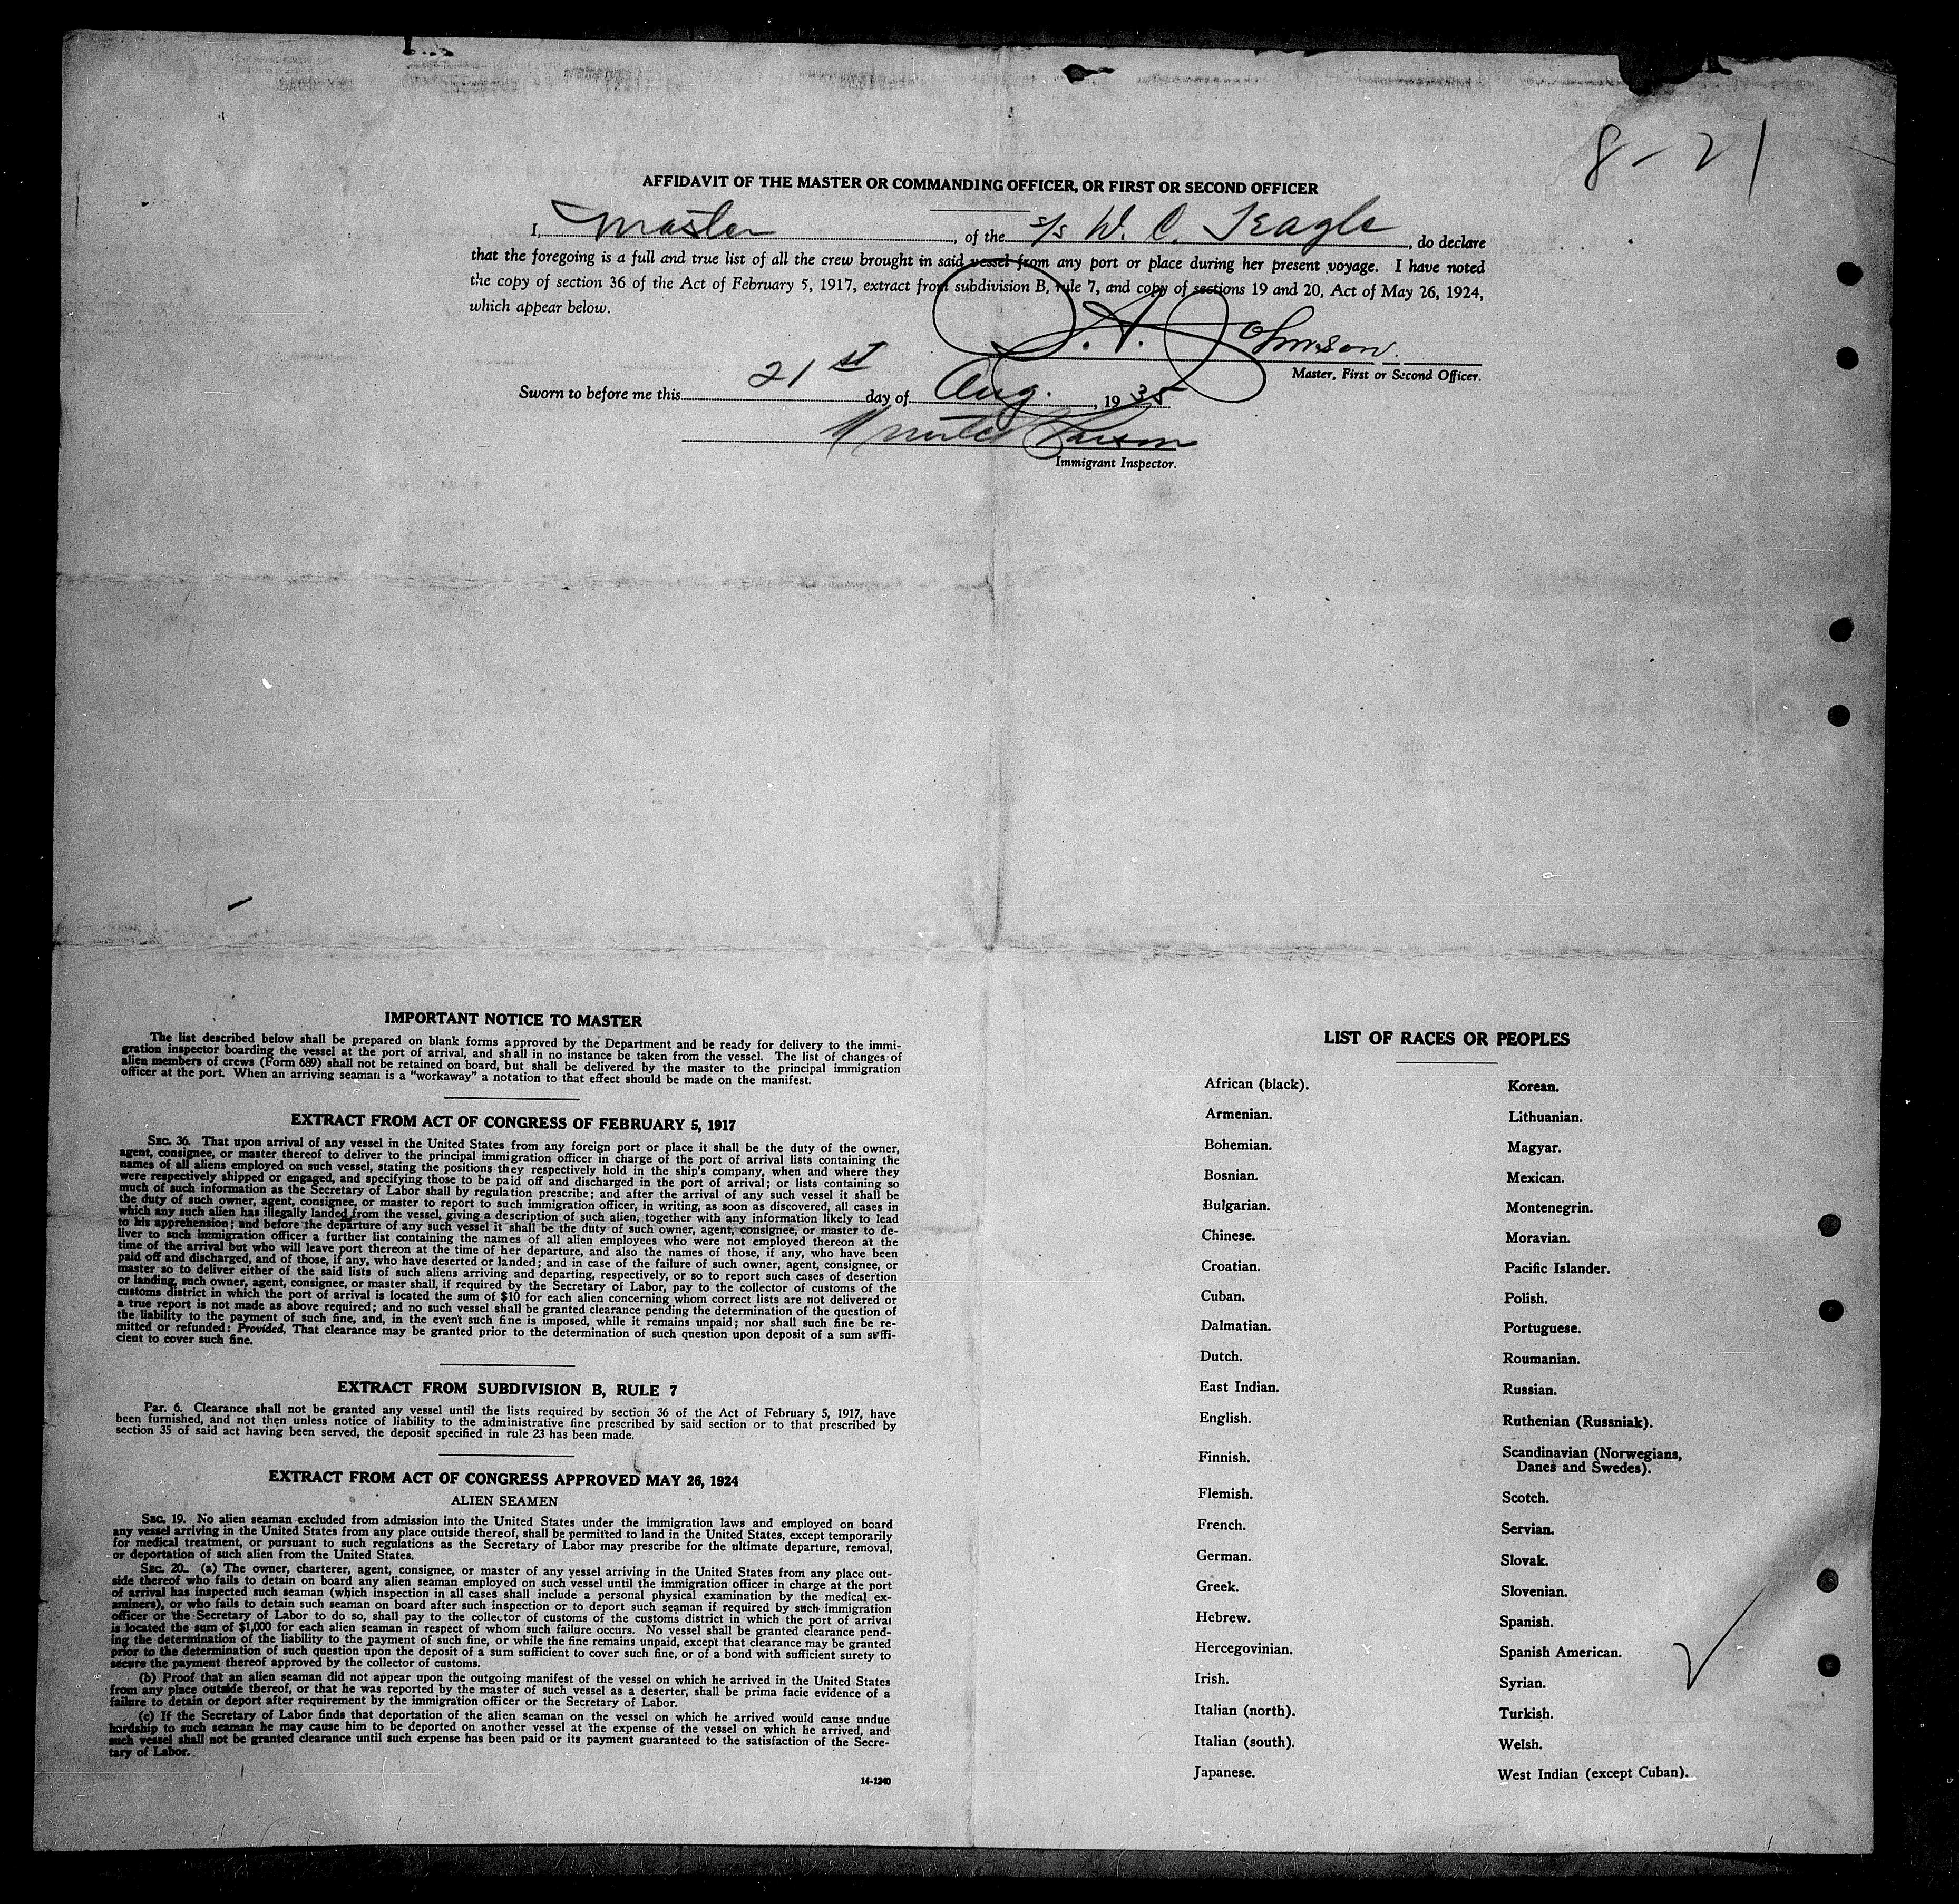 8-21
AFFIDAVIT OF THE MASTER OR COMMANDING OFFICER, OR FIRST OR SECOND OFFICER
I, Master, of the s/s W. C. Teagle, do declare
that the foregoing is a full and true list of all the crew brought in said vessel from any port or place during her present voyage. I have noted
the copy of section 36 of the Act of February 5, 1917, extract from subdivision B, rule 7, and copy of sections 19 and 20, Act of May 26, 1924,
which appear below.
A. Johnson.
Master, First or Second Officer.
Sworn to before me this 21st day of Aug., 1935
Immigrant Inspector.
IMPORTANT NOTICE TO MASTER
The list described below shall be prepared on blank forms approved by the Department and be ready for delivery to the immi-
gration inspector boarding the vessel at the port of arrival, and shall in no instance be taken from the vessel. The list of changes of
alien members of crews (Form 689) shall not be retained on board, but shall be delivered by the master to the principal immigration
officer at the port. When an arriving seaman is a "workaway" a notation to that effect should be made on the manifest.
EXTRACT FROM ACT OF CONGRESS OF FEBRUARY 5, 1917
SEC. 36. That upon arrival of any vessel in the United States from any foreign port or place it shall be the duty of the owner,
agent, consignee, or master thereof to deliver to the principal immigration officer in charge of the port of arrival lists containing the
names of all aliens employed on such vessel, stating the positions they respectively hold in the ship's company, when and where they
were respectively shipped or engaged, and specifying those to be paid off and discharged in the port of arrival; or lists containing so
much of such information as the Secretary of Labor shall by regulation prescribe; and after the arrival of any such vessel it shall be
the duty of such owner, agent, consignee, or master to report to such immigration officer, in writing, as soon as discovered, all cases in
which any such alien has illegally landed from the vessel, giving a description of such alien, together with any information likely to lead
to his apprehension; and before the departure of any such vessel it shall be the duty of such owner, agent, consignee, or master to de-
liver to such immigration officer a further list containing the names of all alien employees who were not employed thereon at the
time of the arrival but who will leave port thereon at the time of her departure, and also the names of those, if any, who have been
paid off and discharged, and of those, if any, who have deserted or landed; and in case of the failure of such owner, agent, consignee, or
master so to deliver either of the said lists of such aliens arriving and departing, respectively, or so to report such cases of desertion
or landing, such owner, agent, consignee, or master shall, if required by the Secretary of Labor, pay to the collector of customs of the
customs district in which the port of arrival is located the sum of $10 for each alien concerning whom correct lists are not delivered or
a true report is not made as above required; and no such vessel shall be granted clearance pending the determination of the question of
the liability to the payment of such fine, and, in the event such fine is imposed, while it remains unpaid; nor shall such fine be re-
mitted or refunded: Provided, That clearance may be granted prior to the determination of such question upon deposit of a sum suffi-
cient to cover such fine.
EXTRACT FROM SUBDIVISION B, RULE 7
Par. 6. Clearance shall not be granted any vessel until the lists required by section 36 of the Act of February 5, 1917, have
been furnished, and not then unless notice of liability to the administrative fine prescribed by said section or to that prescribed by
section 35 of said act having been served, the deposit specified in rule 23 has been made.
EXTRACT FROM ACT OF CONGRESS APPROVED MAY 26, 1924
ALIEN SEAMEN
SEC. 19. No alien seaman excluded from admission into the United States under the immigration laws and employed on board
any vessel arriving in the United States from any place outside thereof, shall be permitted to land in the United States, except temporarily
for medical treatment, or pursuant to such regulations as the Secretary of Labor may prescribe for the ultimate departure, removal,
or deportation of such alien from the United States.
SEC. 20. (a) The owner, charterer, agent, consignee, or master of any vessel arriving in the United States from any place out-
side thereof who fails to detain on board any alien seaman employed on such vessel until the immigration officer in charge at the port
of arrival has inspected such seaman (which inspection in all cases shall include a personal physical examination by the medical ex-
aminers), or who fails to detain such seaman on board after such inspection or to deport such seaman if required by such immigration
officer or the Secretary of Labor to do so, shall pay to the collector of customs of the customs district in which the port of arrival
is located the sum of $1,000 for each alien seaman in respect of whom such failure occurs. No vessel shall be granted clearance pend-
ing the determination of the liability to the payment of such fine, or while the fine remains unpaid, except that clearance may be granted
prior to the determination of such question upon the deposit of a sum sufficient to cover such fine, or of a bond with sufficient surety to
secure the payment thereof approved by the collector of customs.
(b) Proof that an alien seaman did not appear upon the outgoing manifest of the vessel on which he arrived in the United States
from any place outside thereof, or that he was reported by the master of such vessel as a deserter, shall be prima facie evidence of a
failure to detain or deport after requirement by the immigration officer or the Secretary of Labor.
(c) If the Secretary of Labor finds that deportation of the alien seaman on the vessel on which he arrived would cause undue
hardship to such seaman he may cause him to be deported on another vessel at the expense of the vessel on which he arrived, and
such vessel shall not be granted clearance until such expense has been paid or its payment guaranteed to the satisfaction of the Secre-
tary of Labor.
14-1240
LIST OF RACES OR PEOPLES
African (black).
Armenian.
Bohemian.
Bosnian.
Bulgarian.
Chinese.
Croatian.
Cuban.
Dalmatian.
Dutch.
East Indian.
English.
Finnish.
Flemish.
French.
German.
Greek.
Hebrew.
Hercegovinian.
Irish.
Italian (north).
Italian (south).
Japanese.
Korean.
Lithuanian.
Magyar.
Mexican.
Montenegrin.
Moravian.
Pacific Islander.
Polish.
Portuguese.
Roumanian.
Russian.
Ruthenian (Russniak).
Scandinavian (Norwegians,
Danes and Swedes).
Scotch.
Servian.
Slovak.
Slovenian.
Spanish.
Spanish American.
Syrian.
Turkish.
Welsh.
West Indian (except Cuban).